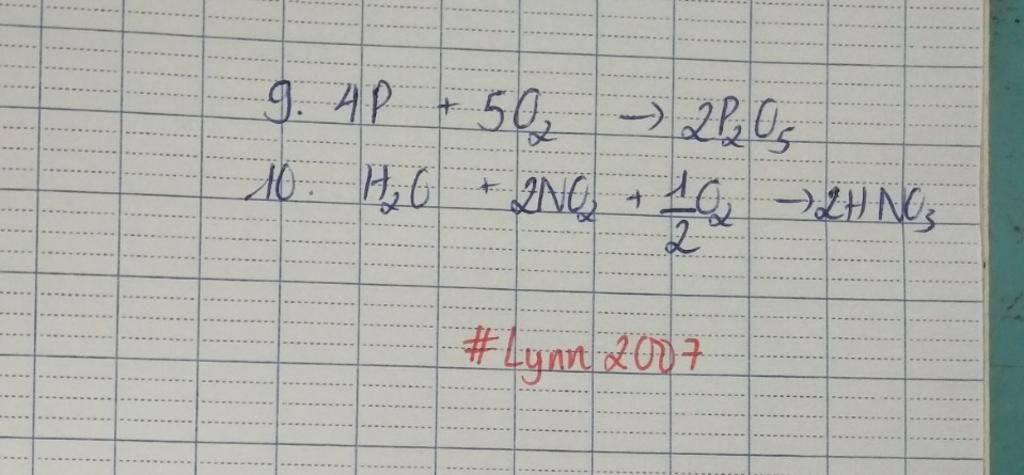 9. 4P + 5O₂ → 2P₂O₅
10. H₂O + 2NO₂ + 1/2 O₂ → 2HNO₃
#Lynn 2007